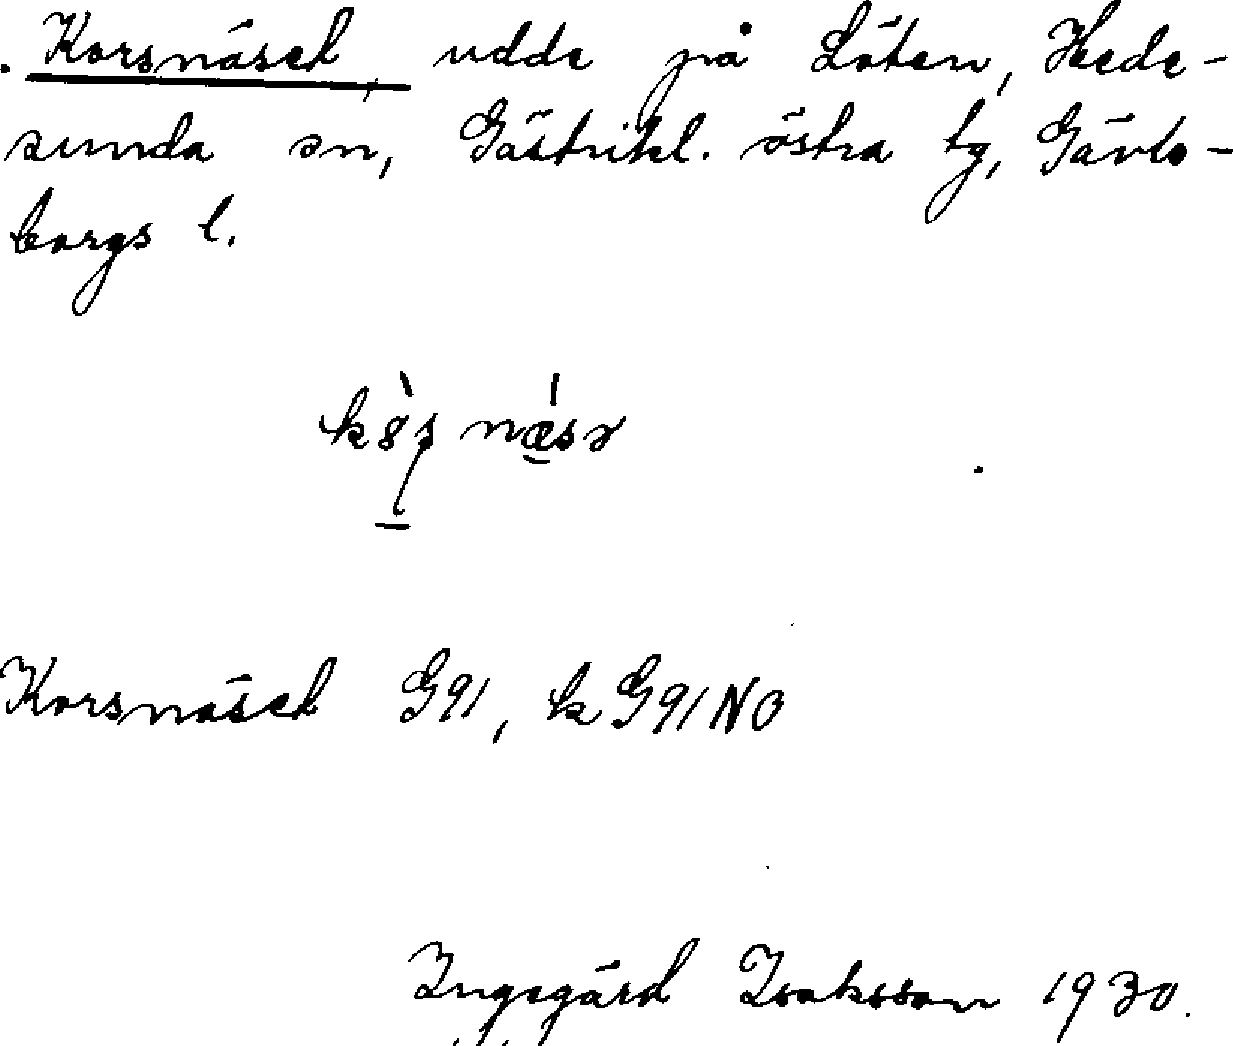 Korsnäset, udde på Löten, Hede-
sunda sn, Gästrikl. östra tg, Gävle-
borgs l.
Korsnäset G91, k G91 NO
Ingegärd Isaksson 1930.